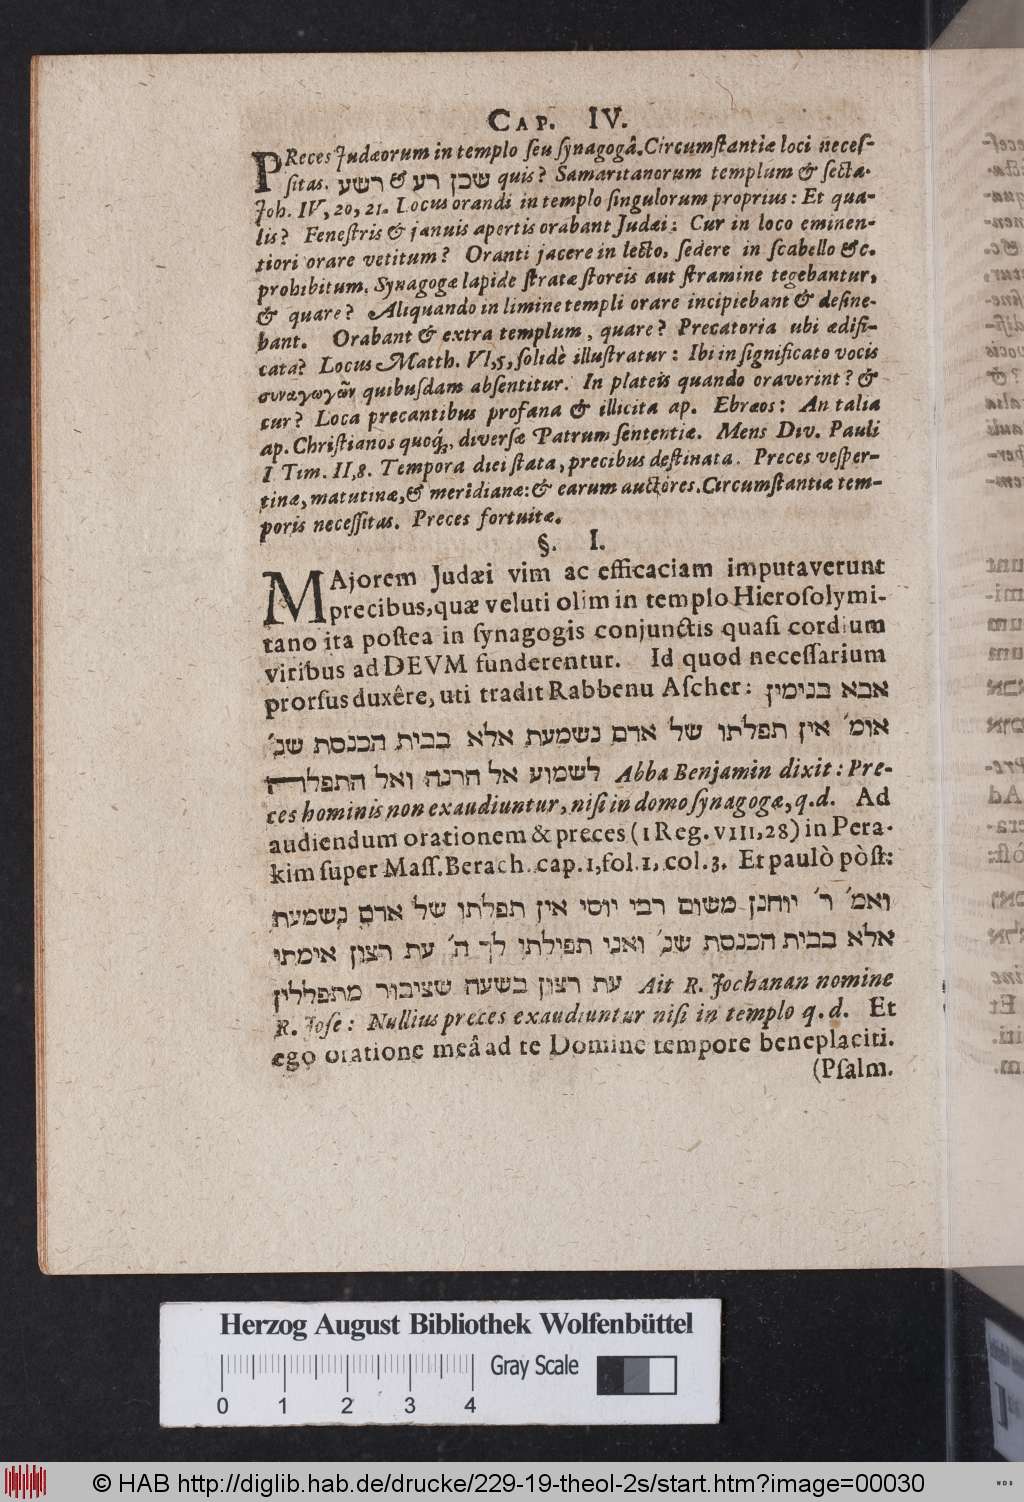 CAP. IV.
PReces Judæorum in templo seu synagogâ. Circumstantiæ loci neces-
sitas. שכן רע & רשע quis? Samaritanorum templum & secta.
Joh. IV, 20, 21. Locus orandi in templo singulorum proprius: Et qua-
lis? Fenestris & januis apertis orabant Judæi: Cur in loco eminen-
tiori orare vetitum? Oranti jacere in lecto, sedere in scabello &c.
prohibitum. Synagogæ lapide stratæ storeis aut stramine tegebantur,
& quare? Aliquando in limine templi orare incipiebant & desine-
bant. Orabant & extra templum, quare? Precatoria ubi ædifi-
cata? Locus Matth. VI, 5, solidè illustratur: Ibi in significato vocis
συναγωγῶν quibusdam absentitur. In plateis quando oraverint? &
cur? Loca precantibus profana & illicita ap. Ebræos: An talia
ap. Christianos quoq́;, diversæ Patrum sententiæ. Mens Div. Pauli
I Tim. II, 8. Tempora diei stata, precibus destinata. Preces vesper-
tinæ, matutinæ, & meridianæ: & earum auctores. Circumstantiæ tem-
poris necessitas. Preces fortuitæ.
§. I.
MAjorem Judæi vim ac efficaciam imputaverunt
precibus, quæ veluti olim in templo Hierosolymi-
tano ita postea in synagogis conjunctis quasi cordium
viribus ad DEVM funderentur. Id quod necessarium
prorsus duxêre, uti tradit Rabbenu Ascher: אבא בנימין
אומ׳ אין תפלתו של אדם נשמעת אלא בבית הכנסת שנ׳
לשמוע אל הרנה ואל התפלה Abba Benjamin dixit: Pre-
ces hominis non exaudiuntur, nisi in domo synagogæ, q.d. Ad
audiendum orationem & preces (1 Reg. VIII, 28) in Pera-
kim super Mass. Berach. cap. 1, fol. 1, col. 3. Et paulò pòst:
ואמ׳ ר׳ יוחנן משום רבי יוסי אין תפלתו של אדם נשמעת
אלא בבית הכנסת שנ׳ ואני תפילתי לך ה׳ עת רצון אימתי
עת רצון בשעה שציבור מתפללין Ait R. Jochanan nomine
R. Jose: Nullius preces exaudiuntur nisi in templo q. d. Et
ego oratione meâ ad te Domine tempore beneplaciti.
(Psalm.
Herzog August Bibliothek Wolfenbüttel
Gray Scale
0 1 2 3 4
© HAB http://diglib.hab.de/drucke/229-19-theol-2s/start.htm?image=00030